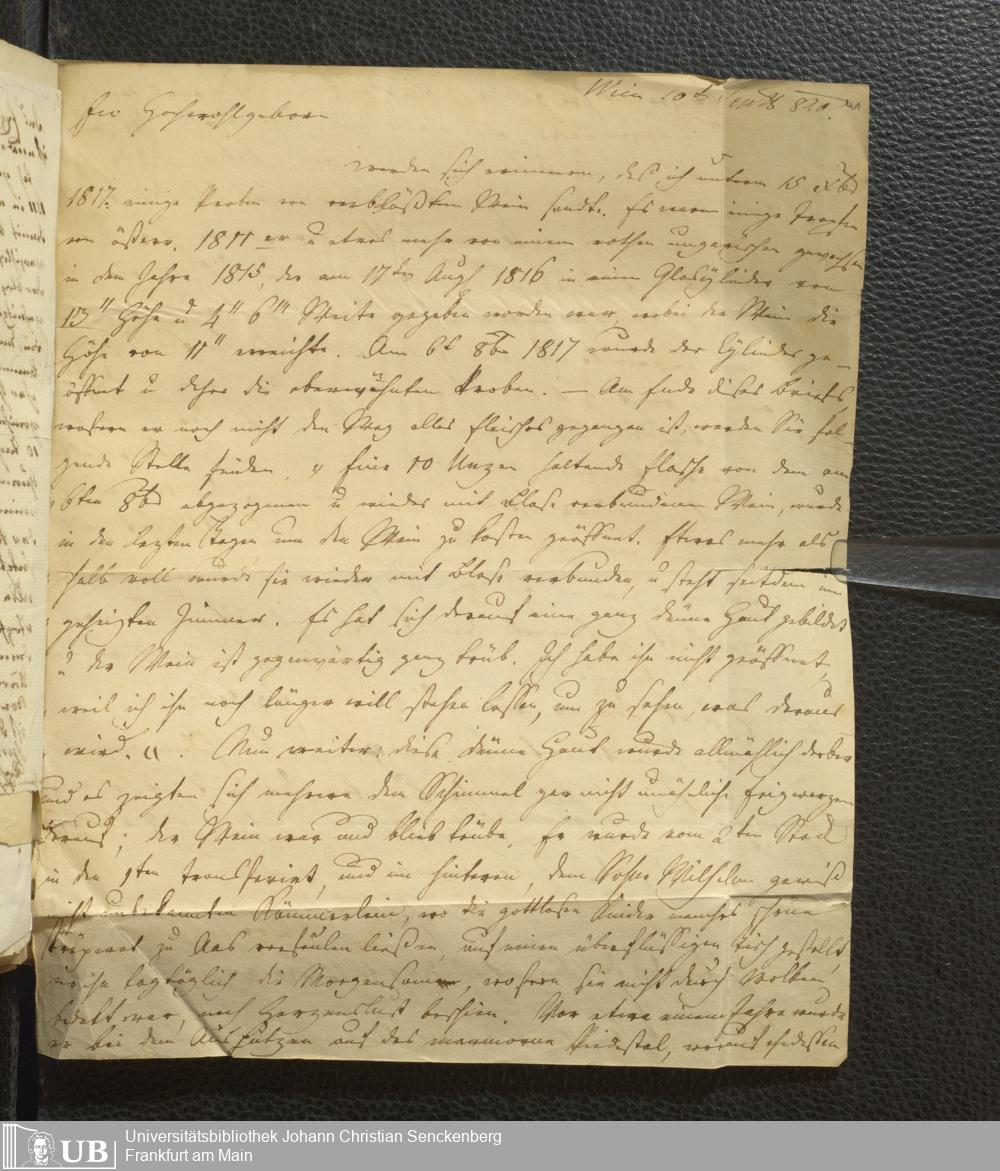 Wien 10t Septb 820.
Euer Hochwohlgeborn
werden sich erinnern, daß ich unterm 15 Xbr
1817. einige Proben von verblaßtem Wein sandte. Es waren einige Tropfen
von österr. 1811er u etwas mehr von einem rothen ungarischen gewachsen
in dem Jahre 1815, der am 17ten Augs 1816 in einen Glascylinder von
13" Höhe u 4" 6"' Weite gegeben worden war, wobei der Wein die
Höhe von 11" erreichte. Am 6t 8br 1817 wurde der Cylinder ge-
öffnet u daher die oberwähnten Proben. — Am Ende dieses Briefes,
wofern er noch nicht den Weg alles Fleisches gegangen ist, werden Sie fol-
gende Stelle finden „ Eine 10 Unzen haltende Flasche von dem am
„ 6ten 8br abgezogenen u wieder mit Blase verbundenen Wein, wurde
in den letzten Tagen, um den Wein zu kosten geöffnet. Etwas mehr als
halb voll wurde sie wieder mit Blase verbunden, u steht seitdem im
geheizten Zimmer. Es hat sich darauf eine ganz dünne Haut gebildet
u der Wein ist gegenwärtig ganz trüb. Ich habe ihn nicht geöffnet,
weil ich ihn noch länger will stehen lassen, um zu sehen, was daraus
wird. “. Nun weiter: diese dünne Haut wurde allmählich derber
und es zeigten sich mehrere dem Schimmel gar nicht unähnliche Feigwarzen
darauf; der Wein war und blieb trübe. Er wurde vom 2ten Stock
in den 1ten transferirt, und im hinteren, dem Sohne Wilhelm gewiß
nicht unbekannten Kämmerlein, wo die gottlosen Kinder manches schöne
Präparat zu Aas verfaulen ließen, auf einen überflüssigen Tisch gestellt,
wo ihn tagtäglich die Morgensonne, wofern sie nicht durch Wolken
bedekt war, nach Herzenslust beschien. Vor etwa einem Jahre wurde
er bei dem Ausputzen auf das marmorne Piedestal, worauf ehedessen
Universitätsbibliothek Johann Christian Senckenberg
UB Frankfurt am Main